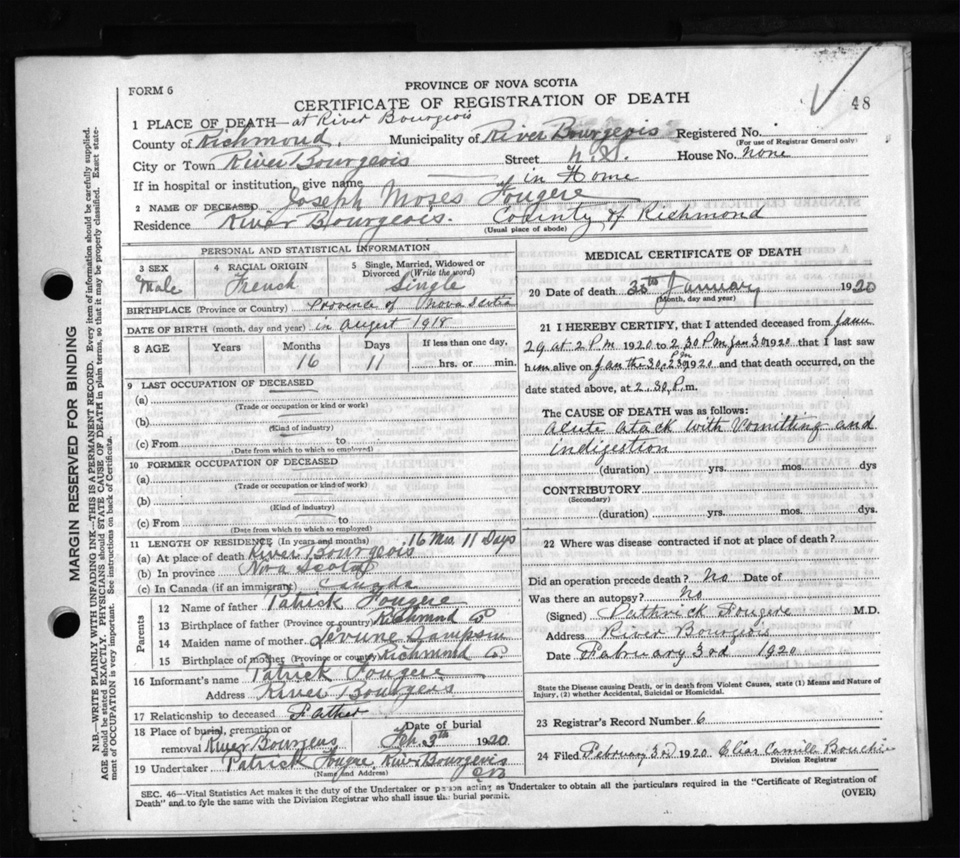 FORM 6
PROVINCE OF NOVA SCOTIA
CERTIFICATE OF REGISTRATION OF DEATH
48
1 PLACE OF DEATH—at River Bourgeois
County of Richmond. Municipality of River Bourgeois Registered No.
(For use of Registrar General only)
City or Town River Bourgeois Street N.S. House No. none
If in hospital or institution, give name in Home
2 NAME OF DECEASED Joseph Moses Fougere
Residence River Bourgeois. County of Richmond
(Usual place of abode)
PERSONAL AND STATISTICAL INFORMATION
3 SEX Male
4 RACIAL ORIGIN French
5 Single, Married, Widowed or Divorced (Write the word) Single
BIRTHPLACE (Province or Country) Province of Nova Scotia
DATE OF BIRTH (month, day and year) in August 1918
8 AGE Years Months Days If less than one day,
16 11 hrs. or min.
9 LAST OCCUPATION OF DECEASED
(a)
(Trade or occupation or kind or work)
(b)
(Kind of industry)
(c) From to
(Date from which to which so employed)
10 FORMER OCCUPATION OF DECEASED
(a)
(Trade or occupation or kind of work)
(b)
(Kind of industry)
(c) From to
(Date from which to which so employed)
11 LENGTH OF RESIDENCE (In years and months) 16 Mos 11 Days
(a) At place of death River Bourgeois
(b) In province Nova Scotia
(c) In Canada (if an immigrant) Canada
Parents
12 Name of father Patrick Fougere
13 Birthplace of father (Province or country) Richmond Co
14 Maiden name of mother Sampson
15 Birthplace of mother (Province or country) Richmond Co.
16 Informant's name Patrick Fougere
Address River Bourgeois
17 Relationship to deceased Father
18 Place of burial, cremation or removal River Bourgeois Date of burial Feb. 3th 1920
19 Undertaker Patrick Fougere River Bourgeois
(Name and Address)
MEDICAL CERTIFICATE OF DEATH
20 Date of death 30th January 1920
(Month, day and year)
21 I HEREBY CERTIFY, that I attended deceased from Janu
29 at 2 P.m 1920 to 2 30 P m Jan 30 1920 that I last saw
him alive on Jan the 30, 2 Pm 1920 and that death occurred, on the
date stated above, at 2.30, P.m.
The CAUSE OF DEATH was as follows:
Acute atack with Vomitting and
indigestion
(duration) yrs. mos. dys
CONTRIBUTORY
(Secondary)
(duration) yrs. mos. dys.
22 Where was disease contracted if not at place of death?
Did an operation precede death? No Date of
Was there an autopsy? No
(Signed) Pathrick Fougere M.D.
Address River Bourgeois
Date February 3rd 1920
State the Disease causing Death, or in death from Violent Causes, state (1) Means and Nature of
Injury, (2) whether Accidental, Suicidal or Homicidal.
23 Registrar's Record Number 6
24 Filed February 3rd 1920 Elias Camille Bouchie
Division Registrar
SEC. 46—Vital Statistics Act makes it the duty of the Undertaker or person acting as Undertaker to obtain all the particulars required in the "Certificate of Registration of
Death" and to fyle the same with the Division Registrar who shall issue the burial permit.
(OVER)
MARGIN RESERVED FOR BINDING
N.B.—WRITE PLAINLY WITH UNFADING INK—THIS IS A PERMANENT RECORD. Every item of information should be carefully supplied.
AGE should be stated EXACTLY. PHYSICIANS should STATE CAUSE OF DEATH in plain terms, so that it may be properly classified. Exact state-
ment of OCCUPATION is very important. See instructions on back of Certificate.